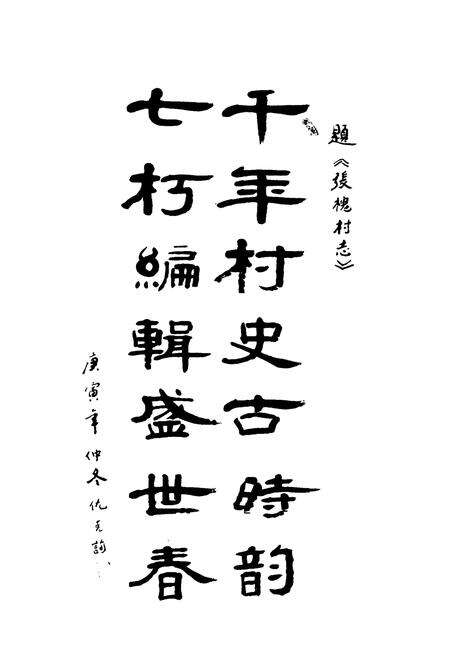 題《張槐村志》
千年村史古時韵
七朽編輯盛世春
庚寅年仲冬仇